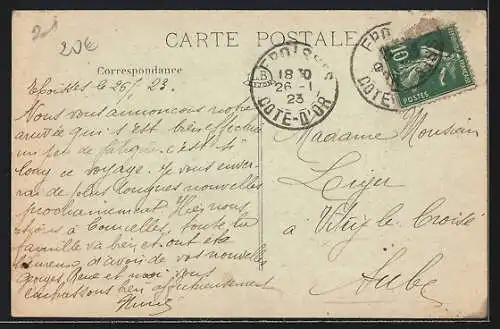 20€
CARTE POSTALE
Correspondance
Epoisses le 26/1 23.
Nous vous annonçons notre
arrivée qui s'est bien effectuée
un peu de fatigue c'est si
long ce voyage. Je vous enver-
rai de plus longues nouvelles
prochainement Hier nous
étions à Courcelles, toute la
famille va bien et ont été
heureux d'avoir de vos nouvelles
Georges, René et moi vous
embrassons bien affectueusement
EPOISSES
18 30
26 - 1
23
COTE-D'OR
10
POSTES
Madame Monsieur
Liger
à Vitry le Croisé
Aube